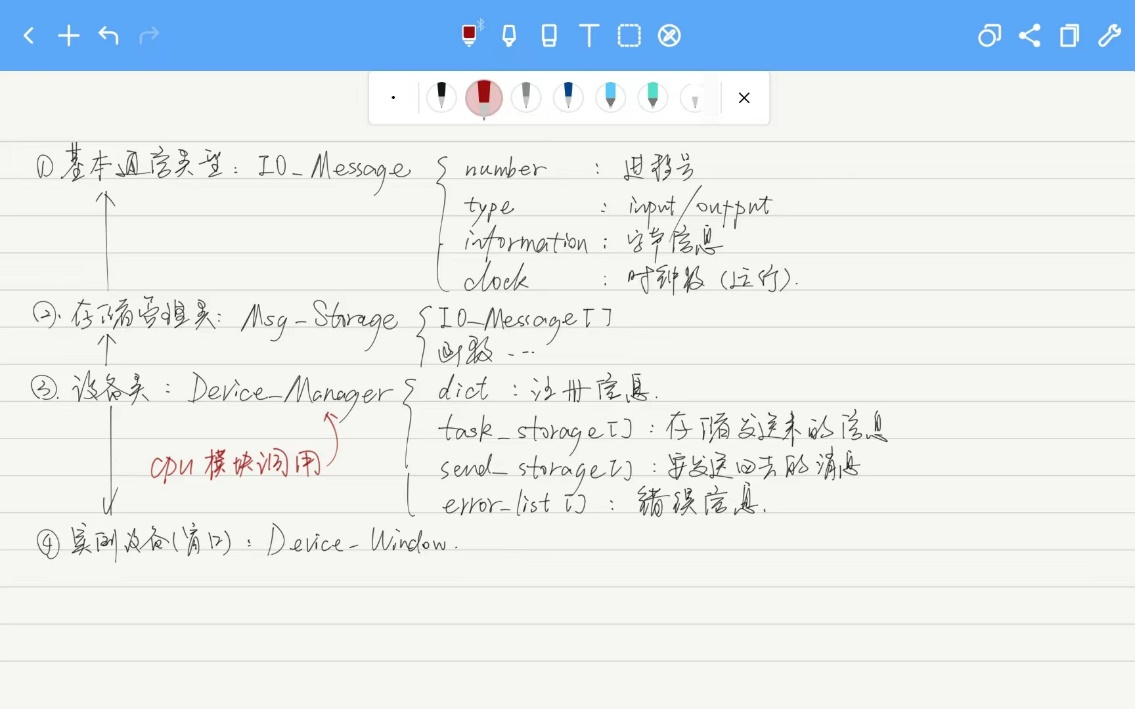 ① 基本通信类型: IO_Message { number : 进程号
type : input/output
information : 字节信息
clock : 时钟数 (运行).
②. 存储管理类: Msg_Storage { IO_Message[]
函数 ...
③. 设备类: Device_Manager { dict : 注册信息.
task_storage[] : 存储发送来的信息
cpu 模块调用
send_storage[] : 要发送回去的消息
error_list[] : 错误信息.
④ 实例设备(窗口): Device_Window.